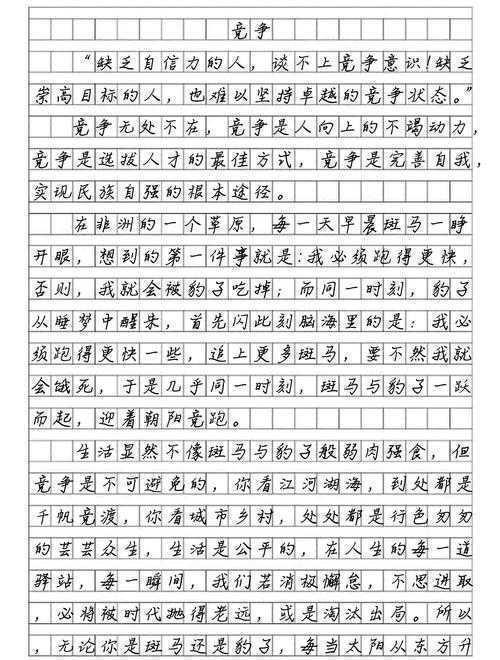 竞争
“缺乏自信力的人，谈不上竞争意识！缺乏
崇高目标的人，也难以坚持卓越的竞争状态。”
竞争无处不在，竞争是人向上的不竭动力，
竞争是选拔人才的最佳方式，竞争是完善自我，
实现民族自强的根本途径。
在非洲的一个草原，每一天早晨斑马一睁
开眼，想到的第一件事就是：我必须跑得更快，
否则，我就会被豹子吃掉；而同一时刻，豹子
从睡梦中醒来，首先闪此刻脑海里的是：我必
须跑得更快一些，追上更多斑马，要不然我就
会饿死，于是几乎同一时刻，斑马与豹子一跃
而起，迎着朝阳竞跑。
生活显然不像斑马与豹子般弱肉强食，但
竞争是不可避免的，你看江河湖海，到处都是
千帆竞渡，你看城市乡村，处处都是行色匆匆
的芸芸众生，生活是公平的，在人生的每一道
驿站，每一瞬间，我们若消极懈怠，不思进取
，必将被时代抛得老远，或是淘汰出局。所以
，无论你是斑马还是豹子，每当太阳从东方升